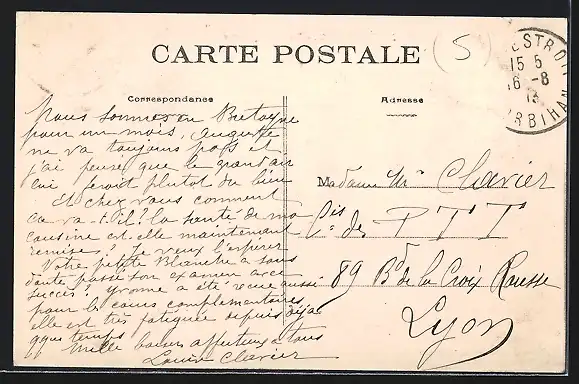 CARTE POSTALE
(5)
ESTROIT
15 5
16 -8
13
ORBIHAN
Correspondance
Adresse
Nous sommes en Bretagne
pour un mois, Auguste
ne va toujours pas et
j'ai pensé que le grand air
lui feroit plutot du bien
Et chez vous comment
ça va-t-il? la santé de ma
cousine est elle maintenant
remise? Je veux l'espérer
Votre petite Blanche a sans
doute passé son examen avec
succès. a été reçue aussi
pour le cours complémentaire
elle est très fatiguée depuis déjà
qque temps
Mille baisers affectueux a tous
Louise Clavier
Madame Clavier
Cis des PTT
89 Bd de la Croix Rousse
Lyon